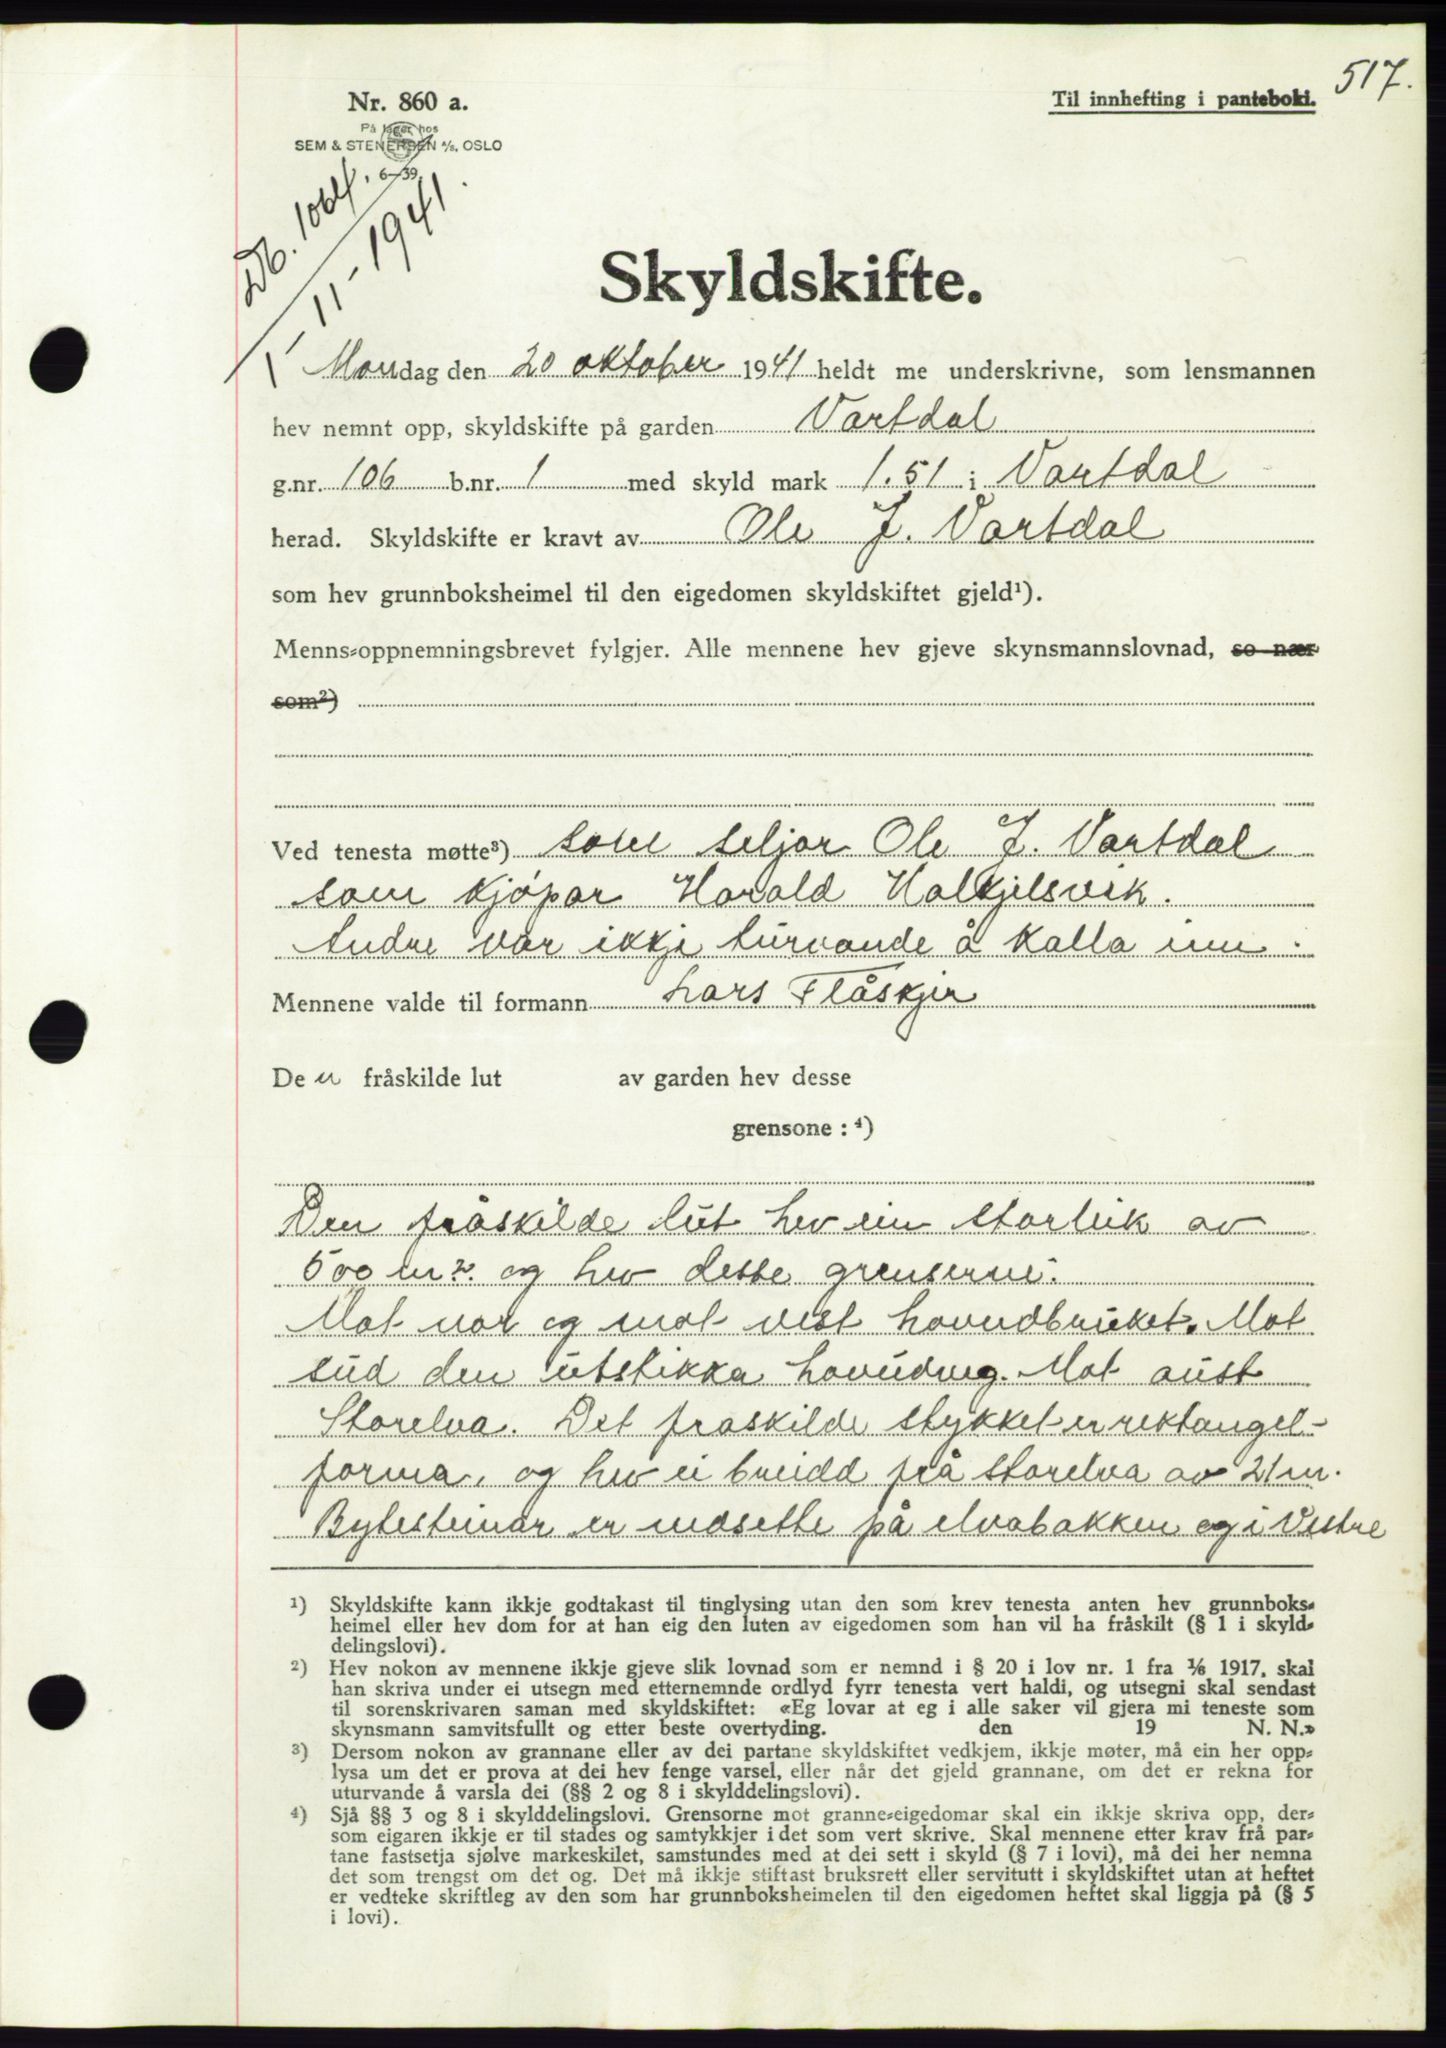 517.
Nr. 860 a.
Til innhefting i panteboki.
På lager hos
SEM & STENERSEN A/S, OSLO
6—39.
Db. 1064.
1 - 11 - 1941.
Skyldskifte.
Mondag den 20 oktober 1941 heldt me underskrivne, som lensmannen
hev nemnt opp, skyldskifte på garden Vartdal
g.nr. 106 b.nr. 1 med skyld mark 1.51 i Vartdal
herad. Skyldskifte er kravt av Ole J. Vartdal
som hev grunnboksheimel til den eigedomen skyldskiftet gjeld¹).
Menns-oppnemningsbrevet fylgjer. Alle mennene hev gjeve skynsmannslovnad, so nær
som²)
Ved tenesta møtte³) som seljar Ole J. Vartdal
som kjöpar Harald Halkjelsvik.
Andre var ikkje turvande å kalla inn.
Mennene valde til formann Lars Flåskjer
De n fråskilde lut av garden hev desse
grensone : ⁴)
Den fråskilde lut hev ein storleik av
500 m². og hev desse grenserne:
Mot nor og mot vest hovudbruket. Mot
sud den utstikka hovudveg. Mot aust
Storelva. Det fraskilde stykket er rektangel-
forma, og hev ei breidd frå storelva av 21 m.
Bytesteinar er nedsette på elvabakken og i Vestre
¹) Skyldskifte kann ikkje godtakast til tinglysing utan den som krev tenesta anten hev grunnboks-
heimel eller hev dom for at han eig den luten av eigedomen som han vil ha fråskilt (§ 1 i skyld-
delingslovi).
²) Hev nokon av mennene ikkje gjeve slik lovnad som er nemnd i § 20 i lov nr. 1 fra 1/6 1917, skal
han skriva under ei utsegn med etternemnde ordlyd fyrr tenesta vert haldi, og utsegni skal sendast
til sorenskrivaren saman med skyldskiftet: «Eg lovar at eg i alle saker vil gjera mi teneste som
skynsmann samvitsfullt og etter beste overtyding. den 19 N. N.»
³) Dersom nokon av grannane eller av dei partane skyldskiftet vedkjem, ikkje møter, må ein her opp-
lysa um det er prova at dei hev fenge varsel, eller når det gjeld grannane, om det er rekna for
uturvande å varsla dei (§§ 2 og 8 i skylddelingslovi).
⁴) Sjå §§ 3 og 8 i skylddelingslovi. Grensorne mot granne-eigedomar skal ein ikkje skriva opp, der-
som eigaren ikkje er til stades og samtykkjer i det som vert skrive. Skal mennene etter krav frå par-
tane fastsetja sjølve markeskilet, samstundes med at dei sett i skyld (§ 7 i lovi), må dei her nemna
det som trengst om det og. Det må ikkje stiftast bruksrett eller servitutt i skyldskiftet utan at heftet
er vedteke skriftleg av den som har grunnboksheimelen til den eigedomen heftet skal liggja på (§ 5
i lovi).